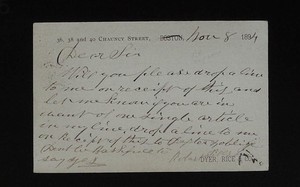 36, 38 and 40 Chauncy Street, Boston, Nov 8 1894
Dear Sir
Will you please drop a line
to me on receipt of this and
let me know if you are in
want of one single article
in my line, drop a line to me
on receipt of this to
say yes
Dyer, Rice